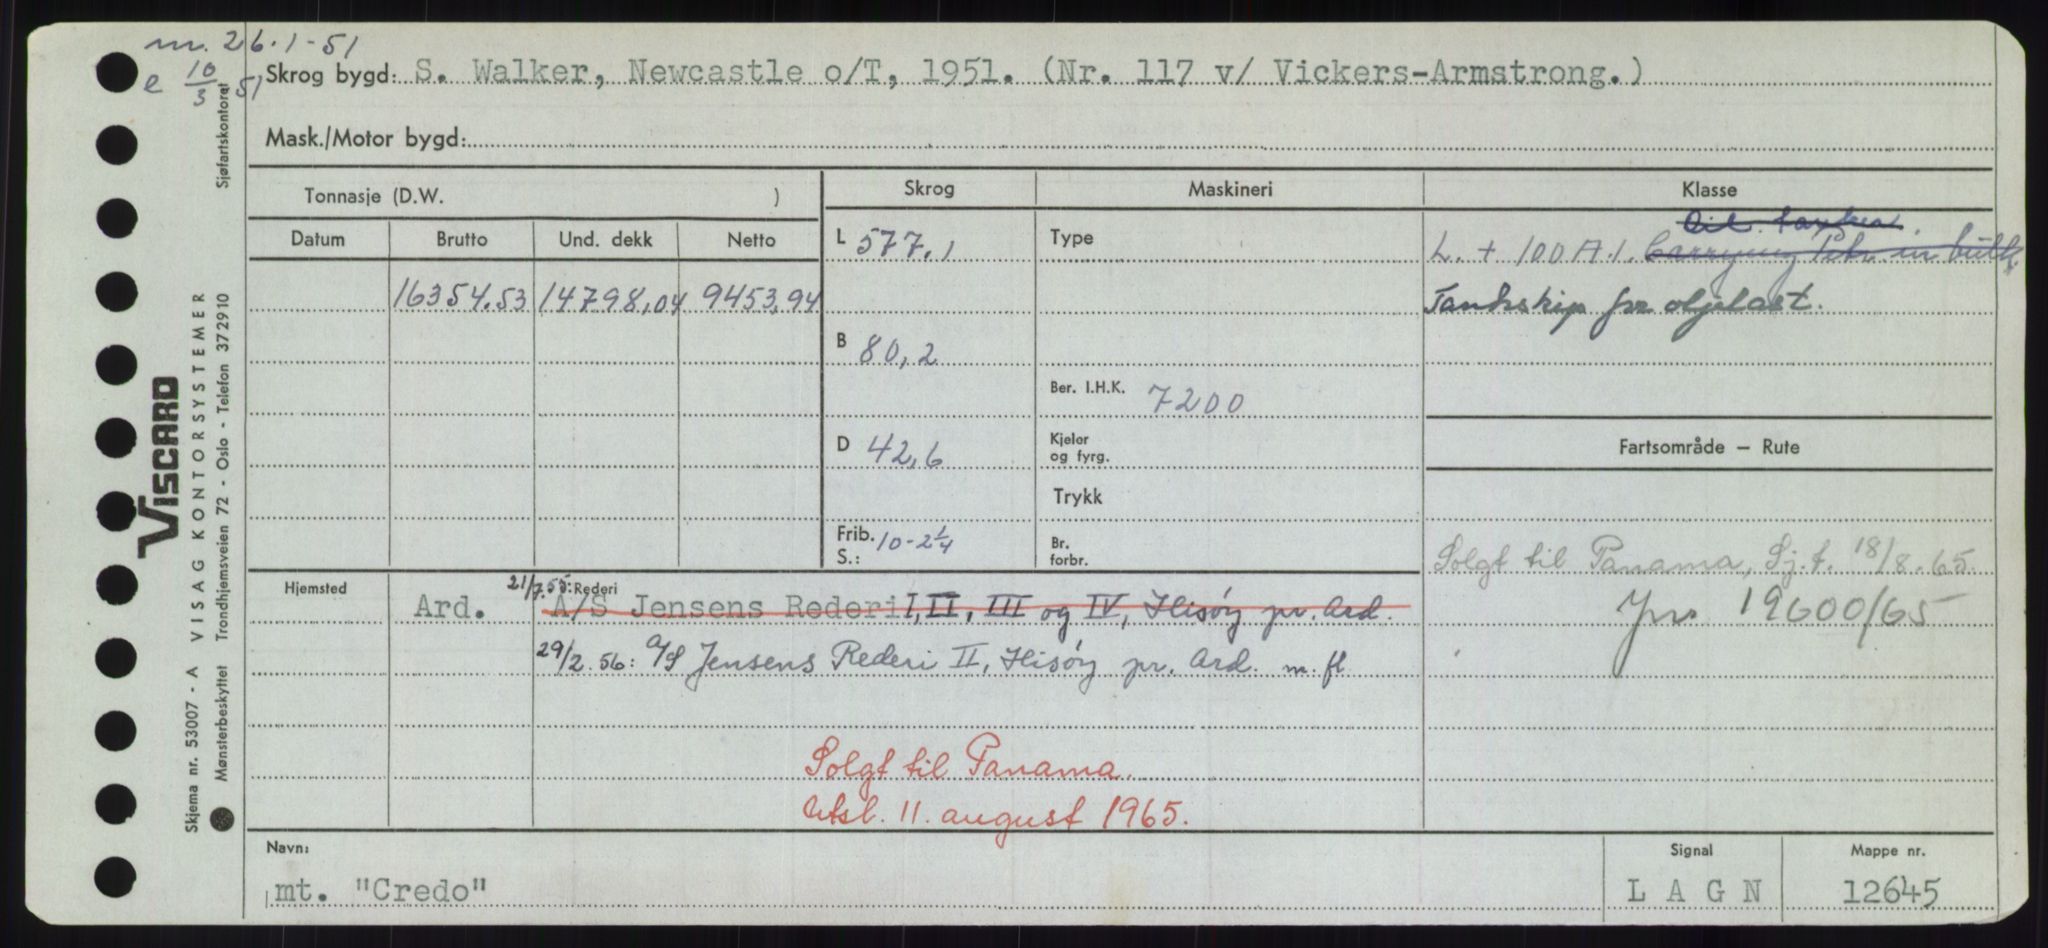 m. 26.1-51
e 10/3 51
Skrog bygd: S. Walker, Newcastle o/T, 1951. (Nr. 117 v/ Vickers-Armstrong.)
Mask./Motor bygd:
Tonnasje (D.W. )
Skrog
Maskineri
Klasse
Datum
Brutto
Und. dekk
Netto
L 577,1
Type
Oil tanker
L. + 100 A.1. Carrying Petr. in bulk.
16354.53
14798,04
9453,94
Tankskip for oljelast.
B 80,2
Ber. I.H.K. 7200
D 42,6
Kjeler
og fyrg.
Fartsområde — Rute
Trykk
Frib.
S.: 10-2¼
Br.
forbr.
Solgt til Panama, Sj.f. 18/8.65.
Jnr. 19600/65
Hjemsted
Rederi
Ard.
21/7.55: A/S Jensens Rederi I, II, III og IV, Hisøy pr. Ard.
29/2.56: A/S Jensens Rederi II, Hisøy pr. Ard. m. fl
Solgt til Panama.
Utsl. 11. august 1965.
Navn:
mt. "Credo"
Signal
L A G N
Mappe nr.
12645
VISCARD
Skjema nr. 53007 - A VISAG KONTORSYSTEMER
Mønsterbeskyttet Trondhjemsveien 72 - Oslo - Telefon 372910 Sjøfartskontoret